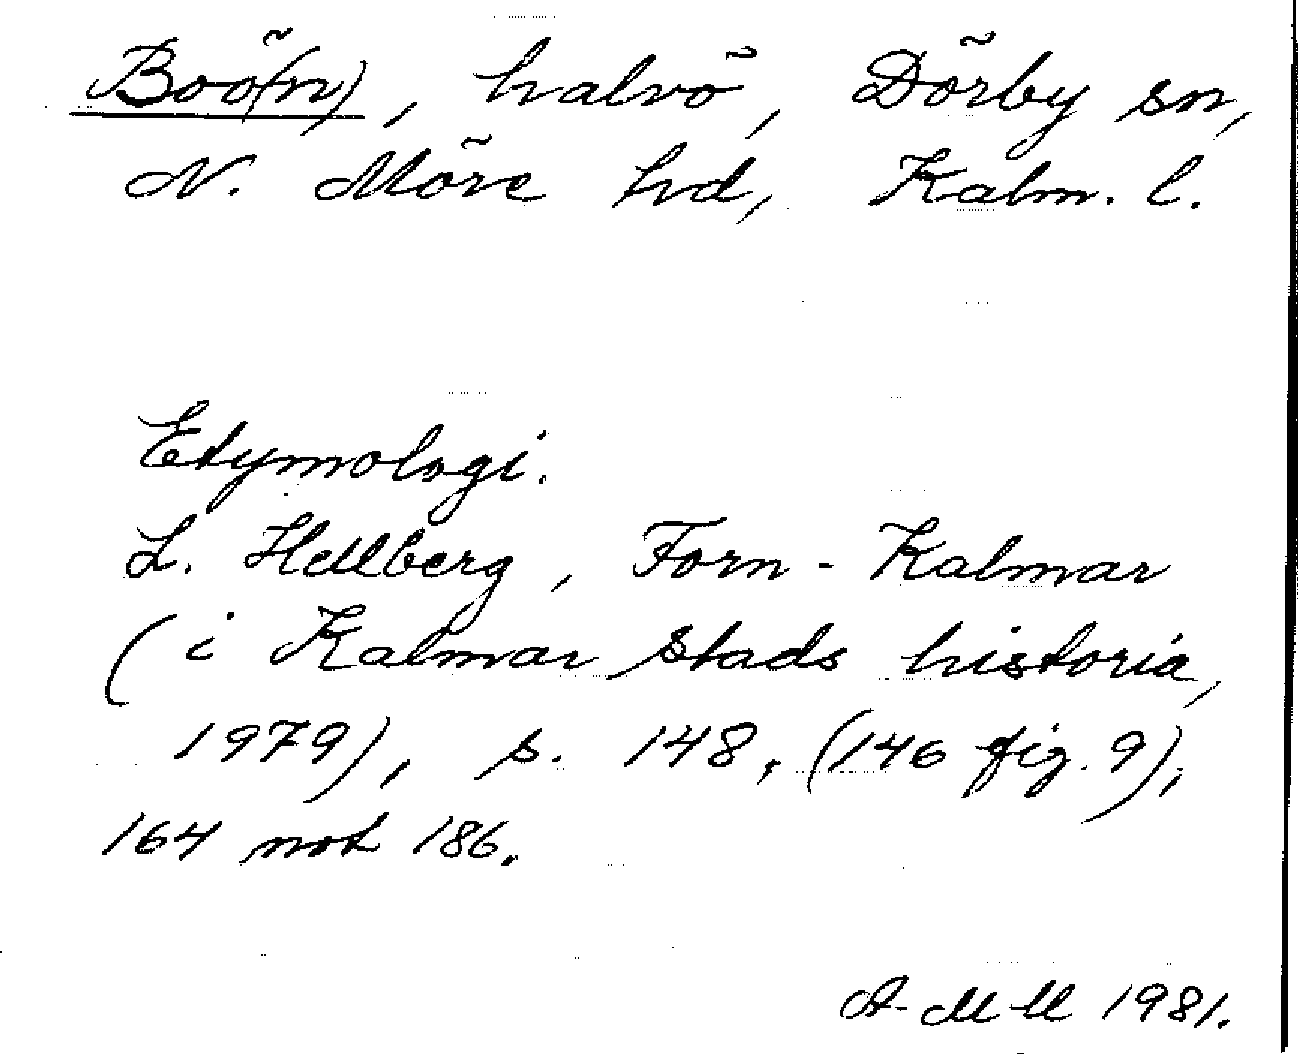 Boö(n), halvö, Dörby sn,
N. Möre hd, Kalm. l.
Etymologi.
L. Hellberg, Forn-Kalmar
(i Kalmar stads historia,
1979), s. 148, (146 fig. 9),
164 not 186.
1981.